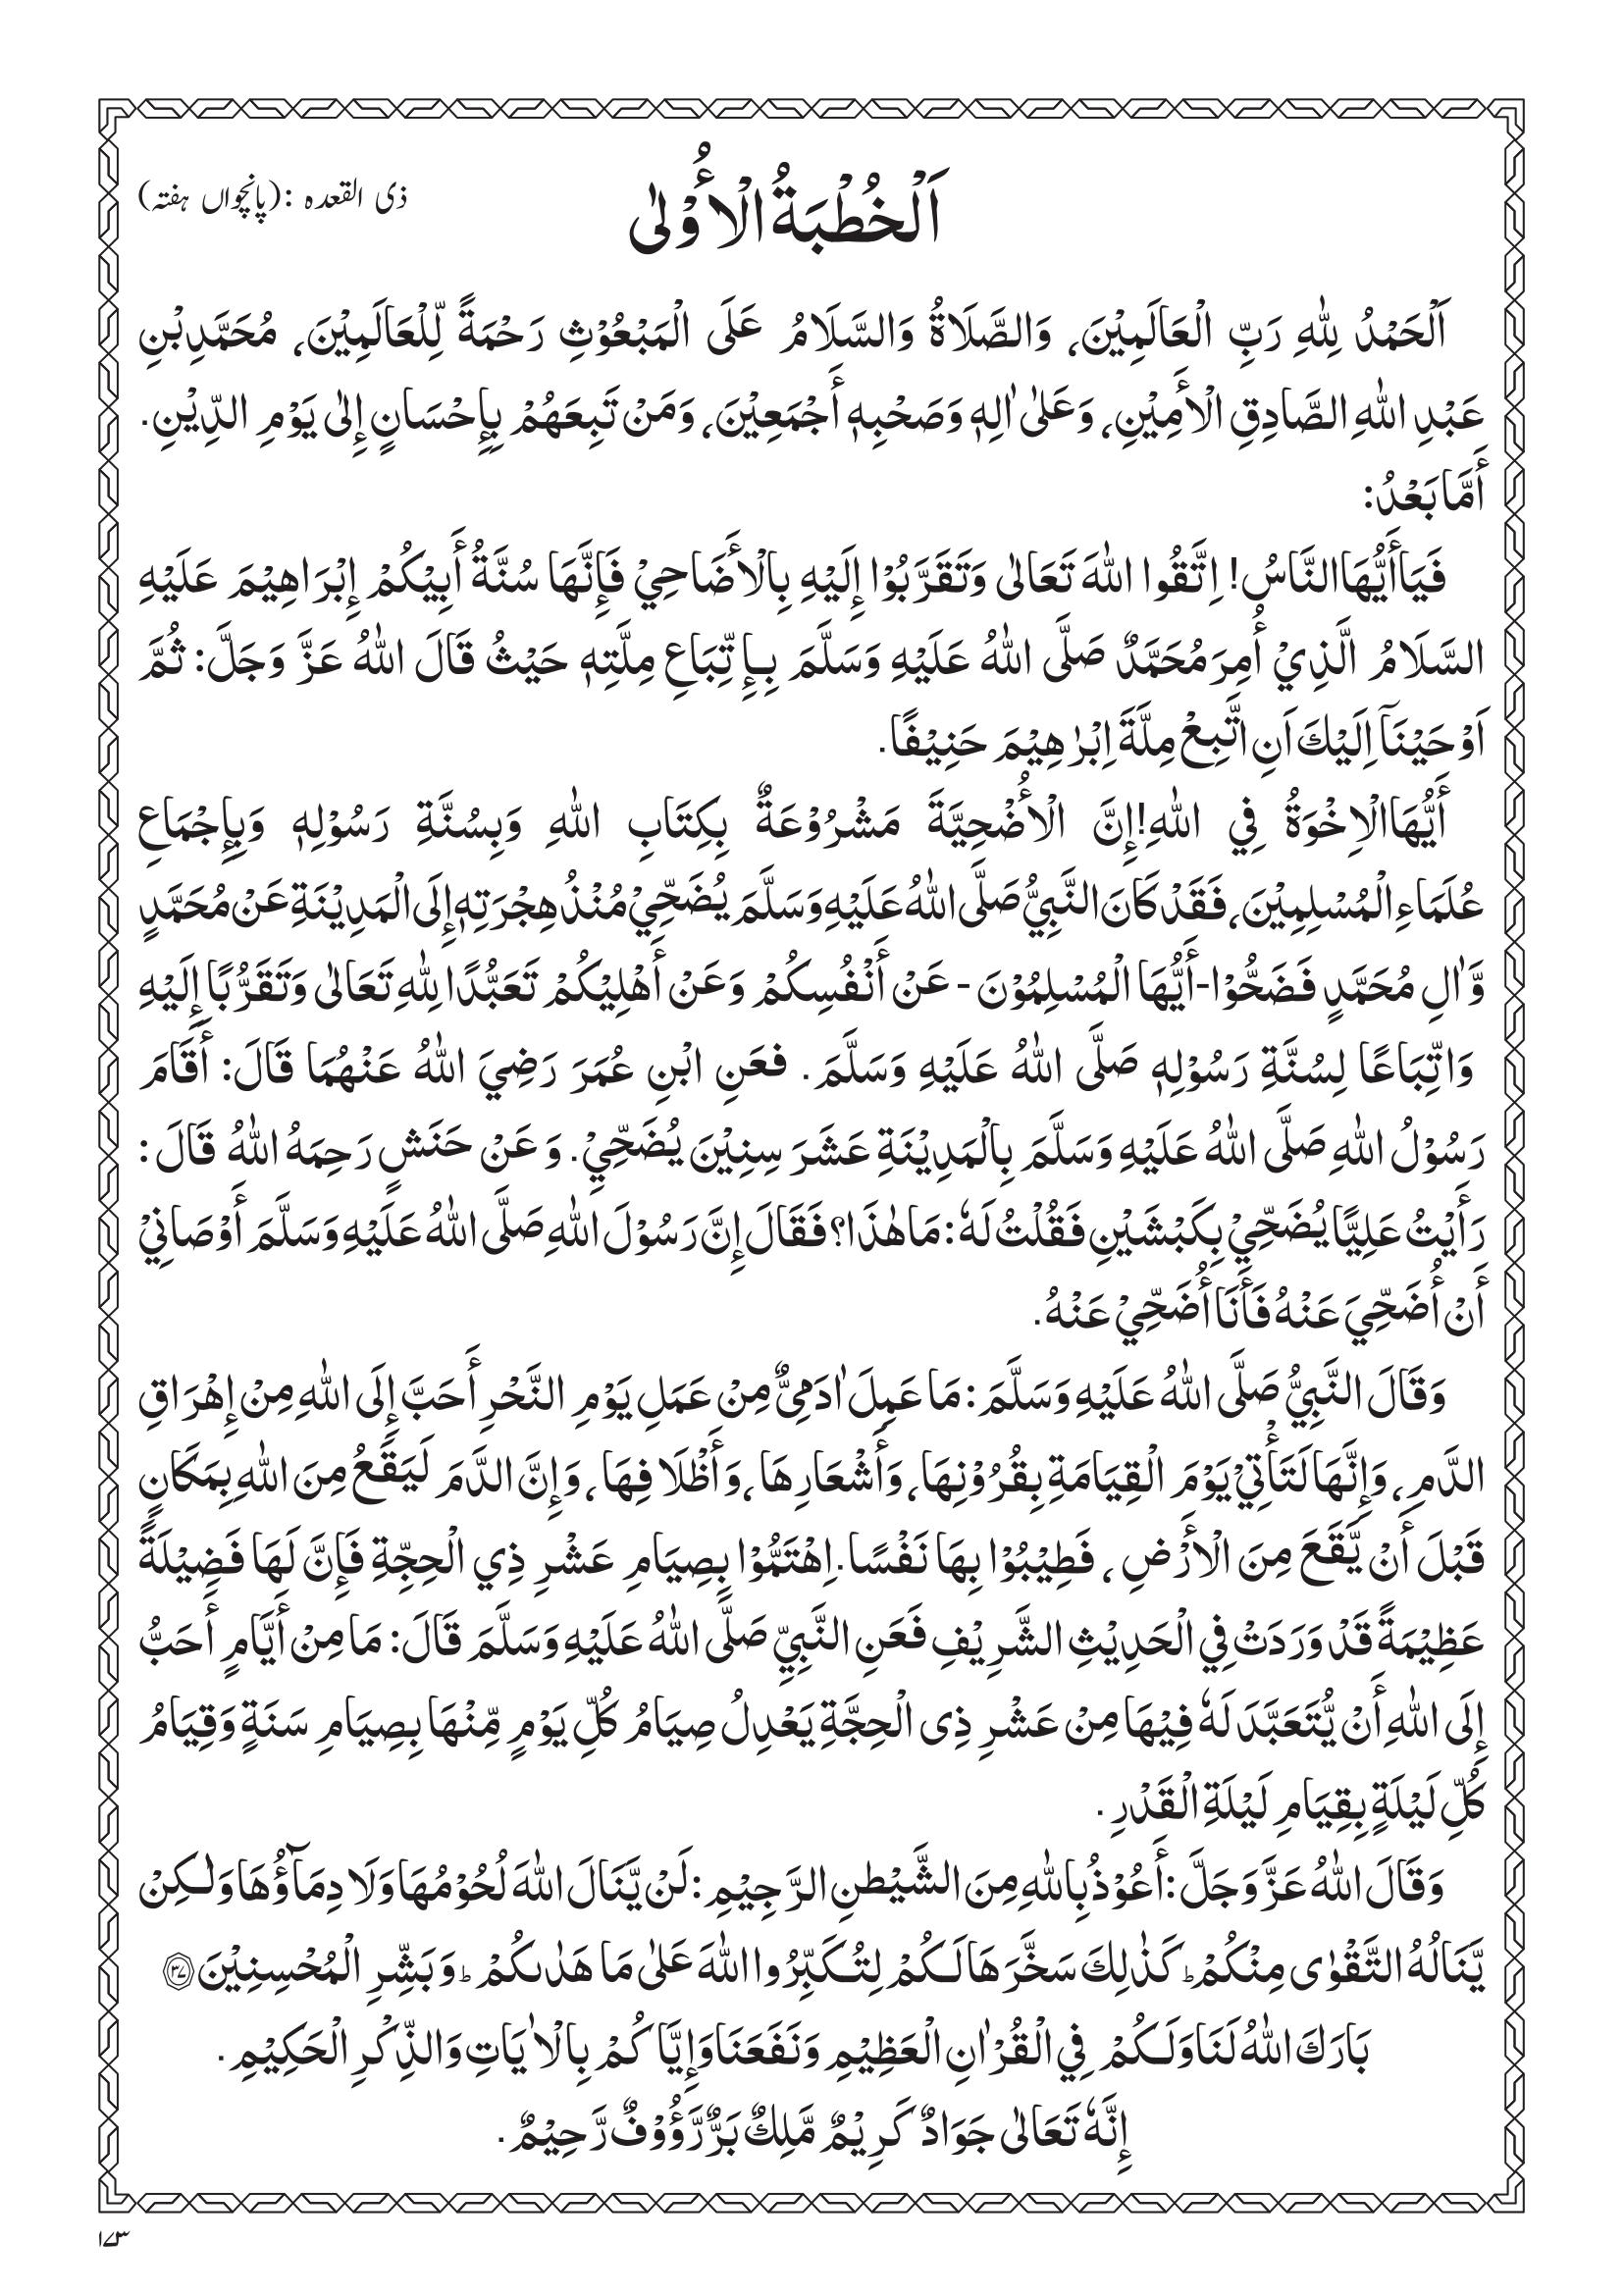 ذی القعدہ :(پانچواں ہفتہ)
اَلْخُطْبَةُ الْأُوْلٰى
اَلْحَمْدُ لِلّٰهِ رَبِّ الْعَالَمِيْنَ، وَالصَّلَاةُ وَالسَّلَامُ عَلَى الْمَبْعُوْثِ رَحْمَةً لِّلْعَالَمِيْنَ، مُحَمَّدِبْنِ
عَبْدِ اللّٰهِ الصَّادِقِ الْأَمِيْنِ، وَعَلىٰ اٰلِهٖ وَصَحْبِهٖ أَجْمَعِيْنَ، وَمَنْ تَبِعَهُمْ بِإِحْسَانٍ إِلىٰ يَوْمِ الدِّيْنِ.
أَمَّا بَعْدُ:
فَيَاأَيُّهَاالنَّاسُ! اِتَّقُوا اللّٰهَ تَعَالىٰ وَتَقَرَّبُوْا إِلَيْهِ بِالْأَضَاحِيْ فَإِنَّهَا سُنَّةُ أَبِيْكُمْ إِبْرَاهِيْمَ عَلَيْهِ
السَّلَامُ الَّذِيْ أُمِرَ مُحَمَّدٌ صَلَّى اللّٰهُ عَلَيْهِ وَسَلَّمَ بِإِتِّبَاعِ مِلَّتِهٖ حَيْثُ قَالَ اللّٰهُ عَزَّ وَجَلَّ: ثُمَّ
اَوْحَيْنَآ اِلَيْكَ اَنِ اتَّبِعْ مِلَّةَ اِبْرٰهِيْمَ حَنِيْفًا.
أَيُّهَاالْاِخْوَةُ فِي اللّٰهِ!إِنَّ الْأُضْحِيَّةَ مَشْرُوْعَةٌ بِكِتَابِ اللّٰهِ وَبِسُنَّةِ رَسُوْلِهٖ وَبِإِجْمَاعِ
عُلَمَاءِ الْمُسْلِمِيْنَ، فَقَدْ كَانَ النَّبِيُّ صَلَّى اللّٰهُ عَلَيْهِ وَسَلَّمَ يُضَحِّيْ مُنْذُ هِجْرَتِهٖ إِلَى الْمَدِيْنَةِ عَنْ مُحَمَّدٍ
وَّاٰلِ مُحَمَّدٍ فَضَحُّوْا-أَيُّهَا الْمُسْلِمُوْنَ - عَنْ أَنْفُسِكُمْ وَعَنْ أَهْلِيْكُمْ تَعَبُّدًا لِلّٰهِ تَعَالىٰ وَتَقَرُّبًا إِلَيْهِ
وَاتِّبَاعًا لِسُنَّةِ رَسُوْلِهٖ صَلَّى اللّٰهُ عَلَيْهِ وَسَلَّمَ. فعَنِ ابْنِ عُمَرَ رَضِيَ اللّٰهُ عَنْهُمَا قَالَ: أَقَامَ
رَسُوْلُ اللّٰهِ صَلَّى اللّٰهُ عَلَيْهِ وَسَلَّمَ بِالْمَدِيْنَةِ عَشَرَ سِنِيْنَ يُضَحِّيْ. وَعَنْ حَنَشٍ رَحِمَهُ اللّٰهُ قَالَ :
رَأَيْتُ عَلِيًّا يُضَحِّيْ بِكَبْشَيْنِ فَقُلْتُ لَهٗ: مَا هٰذَا؟ فَقَالَ إِنَّ رَسُوْلَ اللّٰهِ صَلَّى اللّٰهُ عَلَيْهِ وَسَلَّمَ أَوْصَانِيْ
أَنْ أُضَحِّيَ عَنْهُ فَأَنَا أُضَحِّيْ عَنْهُ.
وَقَالَ النَّبِيُّ صَلَّى اللّٰهُ عَلَيْهِ وَسَلَّمَ: مَا عَمِلَ اٰدَمِيٌّ مِنْ عَمَلِ يَوْمِ النَّحْرِ أَحَبَّ إِلَى اللّٰهِ مِنْ إِهْرَاقِ
الدَّمِ، وَإِنَّهَا لَتَأْتِيْ يَوْمَ الْقِيَامَةِ بِقُرُوْنِهَا، وَأَشْعَارِهَا، وَأَظْلَافِهَا، وَإِنَّ الدَّمَ لَيَقَعُ مِنَ اللّٰهِ بِمَكَانٍ
قَبْلَ أَنْ يَّقَعَ مِنَ الْأَرْضِ، فَطِيْبُوْا بِهَا نَفْسًا.اِهْتَمُّوْا بِصِيَامِ عَشْرِ ذِي الْحِجِّةِ فَإِنَّ لَهَا فَضِيْلَةً
عَظِيْمَةً قَدْ وَرَدَتْ فِي الْحَدِيْثِ الشَّرِيْفِ فَعَنِ النَّبِيِّ صَلَّى اللّٰهُ عَلَيْهِ وَسَلَّمَ قَالَ: مَا مِنْ أَيَّامٍ أَحَبُّ
إِلَى اللّٰهِ أَنْ يُّتَعَبَّدَ لَهٗ فِيْهَا مِنْ عَشْرِ ذِى الْحِجَّةِ يَعْدِلُ صِيَامُ كُلِّ يَوْمٍ مِّنْهَا بِصِيَامِ سَنَةٍ وَقِيَامُ
كُلِّ لَيْلَةٍ بِقِيَامِ لَيْلَةِ الْقَدْرِ.
وَقَالَ اللّٰهُ عَزَّ وَجَلَّ: أَعُوْذُ بِاللّٰهِ مِنَ الشَّيْطٰنِ الرَّجِيْمِ: لَنْ يَّنَالَ اللّٰهَ لُحُوْمُهَا وَلَا دِمَآؤُهَا وَلٰكِنْ
يَّنَالُهُ التَّقْوٰى مِنْكُمْ ؕ كَذٰلِكَ سَخَّرَهَا لَكُمْ لِتُكَبِّرُوا اللّٰهَ عَلىٰ مَا هَدٰىكُمْ ؕ وَبَشِّرِ الْمُحْسِنِيْنَ ۝۳۷
بَارَكَ اللّٰهُ لَنَا وَلَكُمْ فِي الْقُرْاٰنِ الْعَظِيْمِ وَنَفَعَنَا وَإِيَّاكُمْ بِالْاٰيَاتِ وَالذِّكْرِ الْحَكِيْمِ.
إِنَّهٗ تَعَالىٰ جَوَادٌ كَرِيْمٌ مَّلِكٌ بَرٌّ رَّؤُوْفٌ رَّحِيْمٌ.
۱۷۳